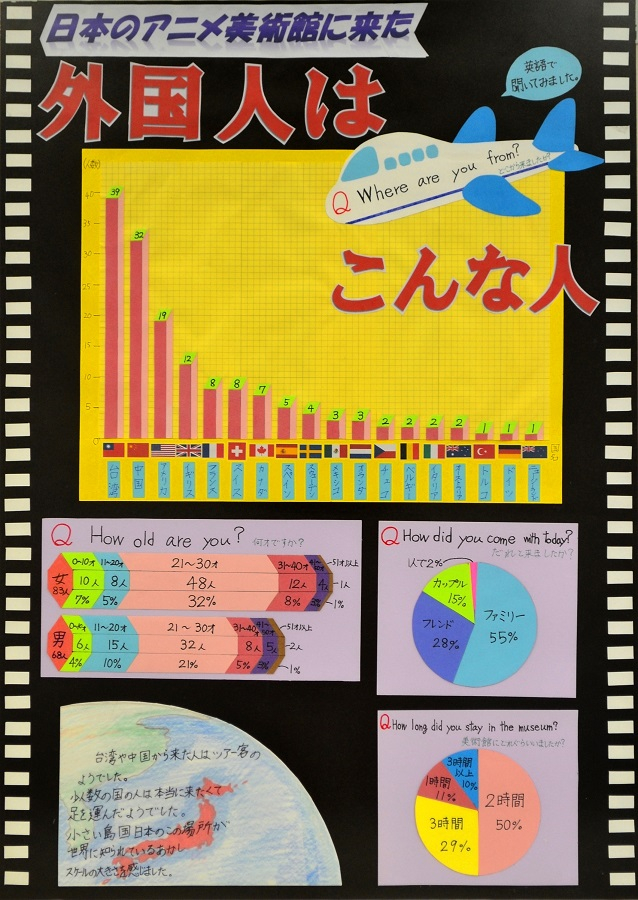 日本のアニメ美術館に来た
外国人は
英語で
聞いてみました。
Q Where are you from?
どこから来ましたか?
こんな人
(人数)
40
35
30
25
20
15
10
5
0
39
32
19
12
8
8
7
5
4
3
3
2
2
2
2
1
1
1
国名
台湾
中国
アメリカ
イギリス
フランス
スイス
カナダ
スペイン
スウェーデン
メキシコ
オランダ
チェコ
ベルギー
イタリア
オーストラリア
トルコ
ドイツ
ニュージーランド
Q How old are you? 何才ですか?
女
83人
0~10才 11~20才 21~30才 31~40才 51才以上
10人 8人 48人 12人 4人 1人
7% 5% 32% 8% 3% 1%
男
68人
0~10才 11~20才 21~30才 31~40才 51才以上
6人 15人 32人 8人 5人 2人
4% 10% 21% 5% 3% 1%
Q How did you come with today?
だれと来ましたか?
1人で2%
カップル
15%
フレンド
28%
ファミリー
55%
Q How long did you stay in the museum?
美術館にどれぐらいいましたか?
3時間
以上
10%
1時間
11%
2時間
50%
3時間
29%
台湾や中国から来た人はツアー客の
ようでした。
少人数の国の人は本当に来たくて
足を運んだようでした。
小さい島国日本のこの場所が
世界に知られているあかし
スケールの大きさを感じました。